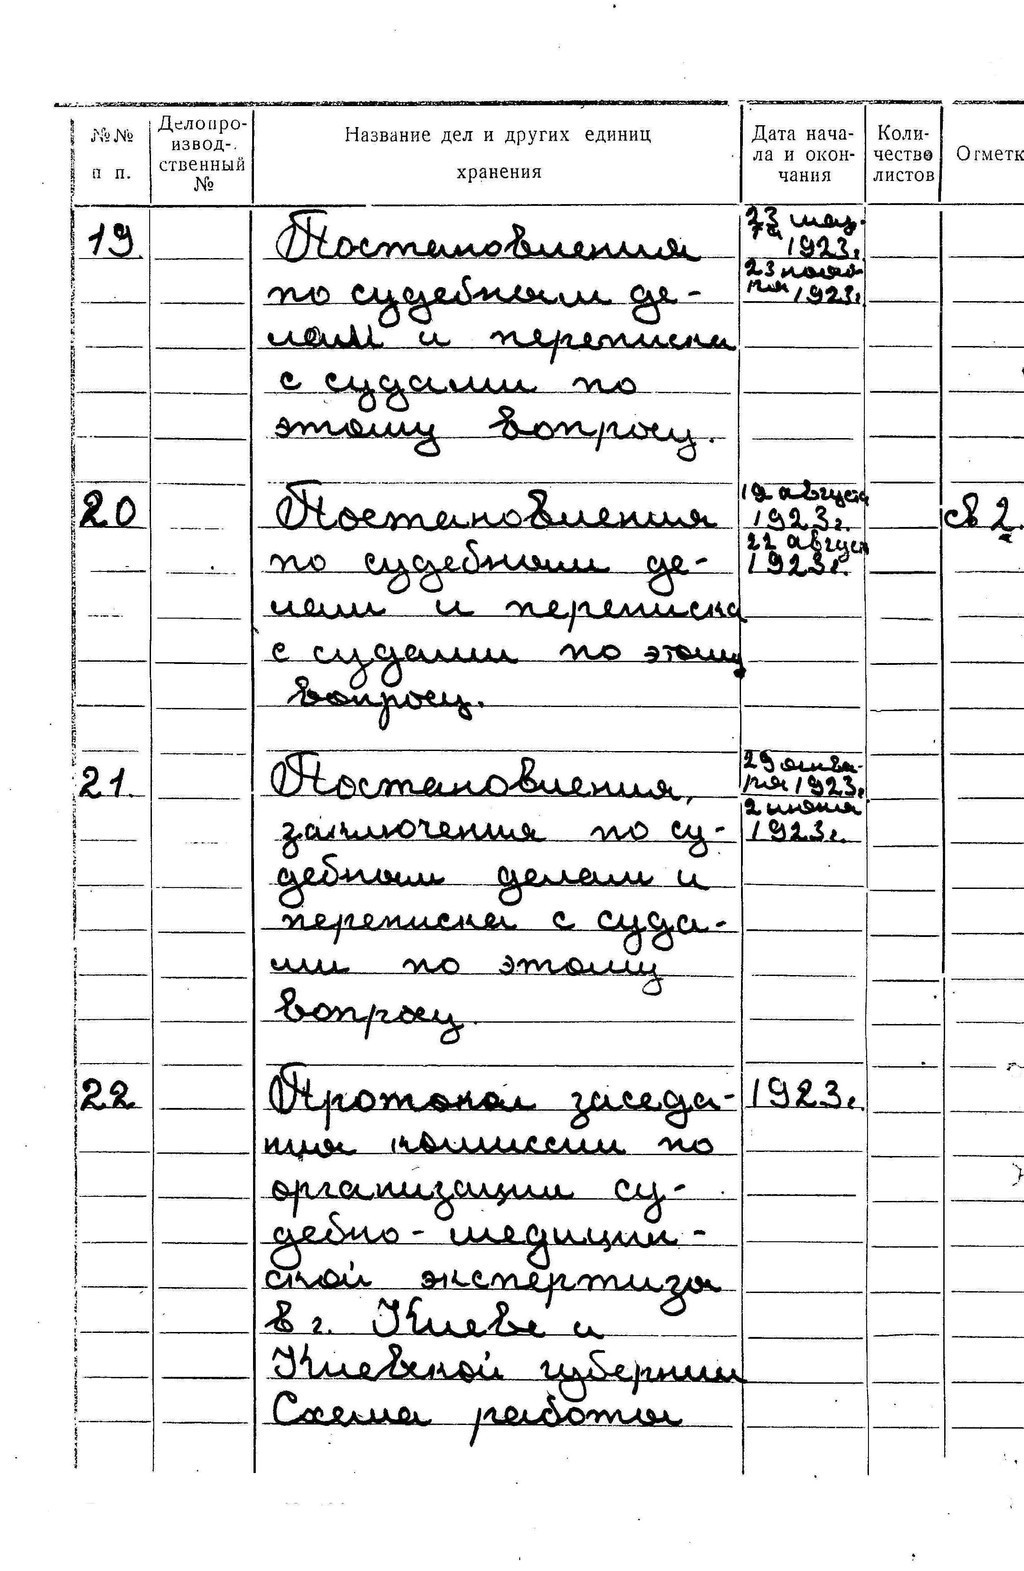 №№ п п.
Делопро-
извод-
ственный
№
Название дел и других единиц
хранения
Дата нача-
ла и окон-
чания
Коли-
чество
листов
Отметк
19.
Постановления
по судебным де-
лам и переписка
с судами по
этому вопросу.
1923г.
23 нояб-
ря 1923г.
20
Постановления
по судебным де-
лам и переписка
с судами по этому
вопросу.
19 августа
1923г.
22 август
1923г.
св 2.
21.
Постановления,
заключения по су-
дебным делам и
переписка с суда-
ми по этому
вопросу.
29 янва-
ря 1923г.
2 июня
1923г.
22
Протокол заседа-
ния комиссии по
организации су-
дебно-медицин-
ской экспертизы
в г. Киеве и
Киевской губернии
Схема работы
1923г.